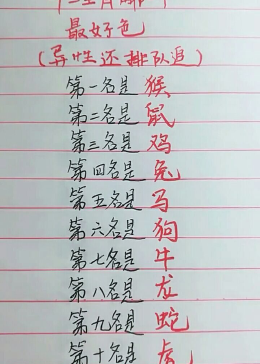 最好色
(异性还排队追)
第一名是 猴
第二名是 鼠
第三名是 鸡
第四名是 兔
第五名是 马
第六名是 狗
第七名是 牛
第八名是 龙
第九名是 蛇
第十名是 虎